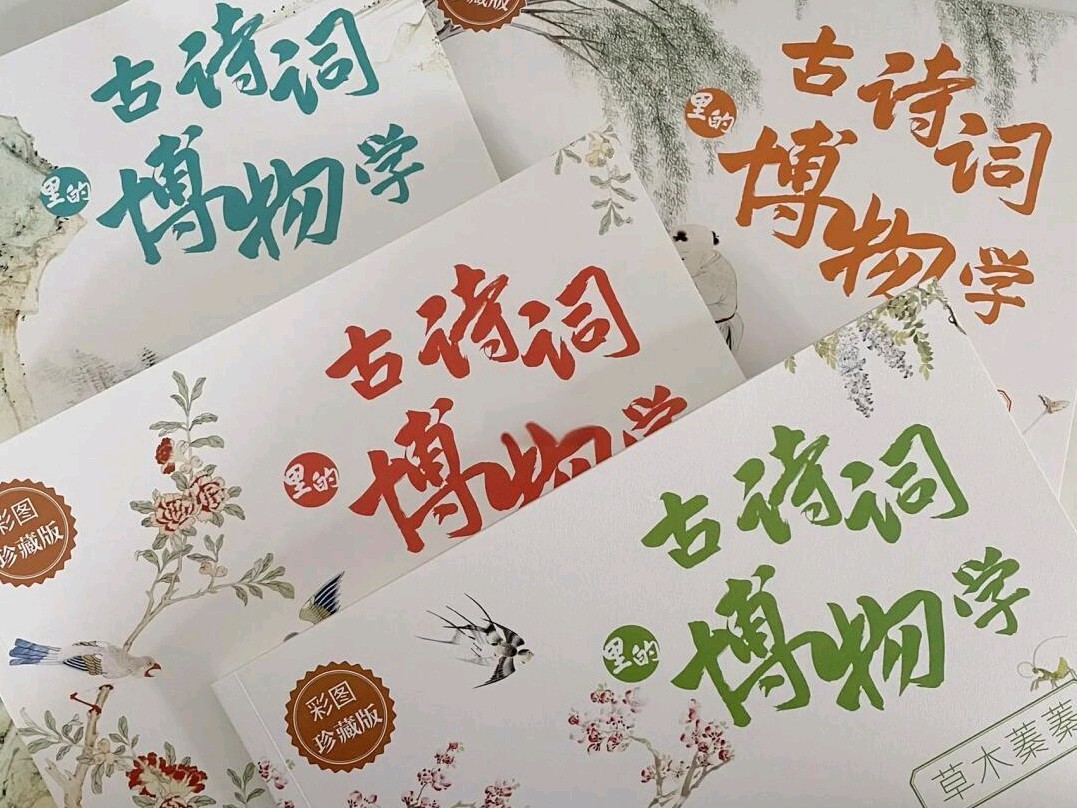 古诗词
里的
博物学
珍藏版
古诗词
里的
博物学
古诗词
里的
博物学
彩图
珍藏版
古诗词
里的
博物学
彩图
珍藏版
草木蓁蓁